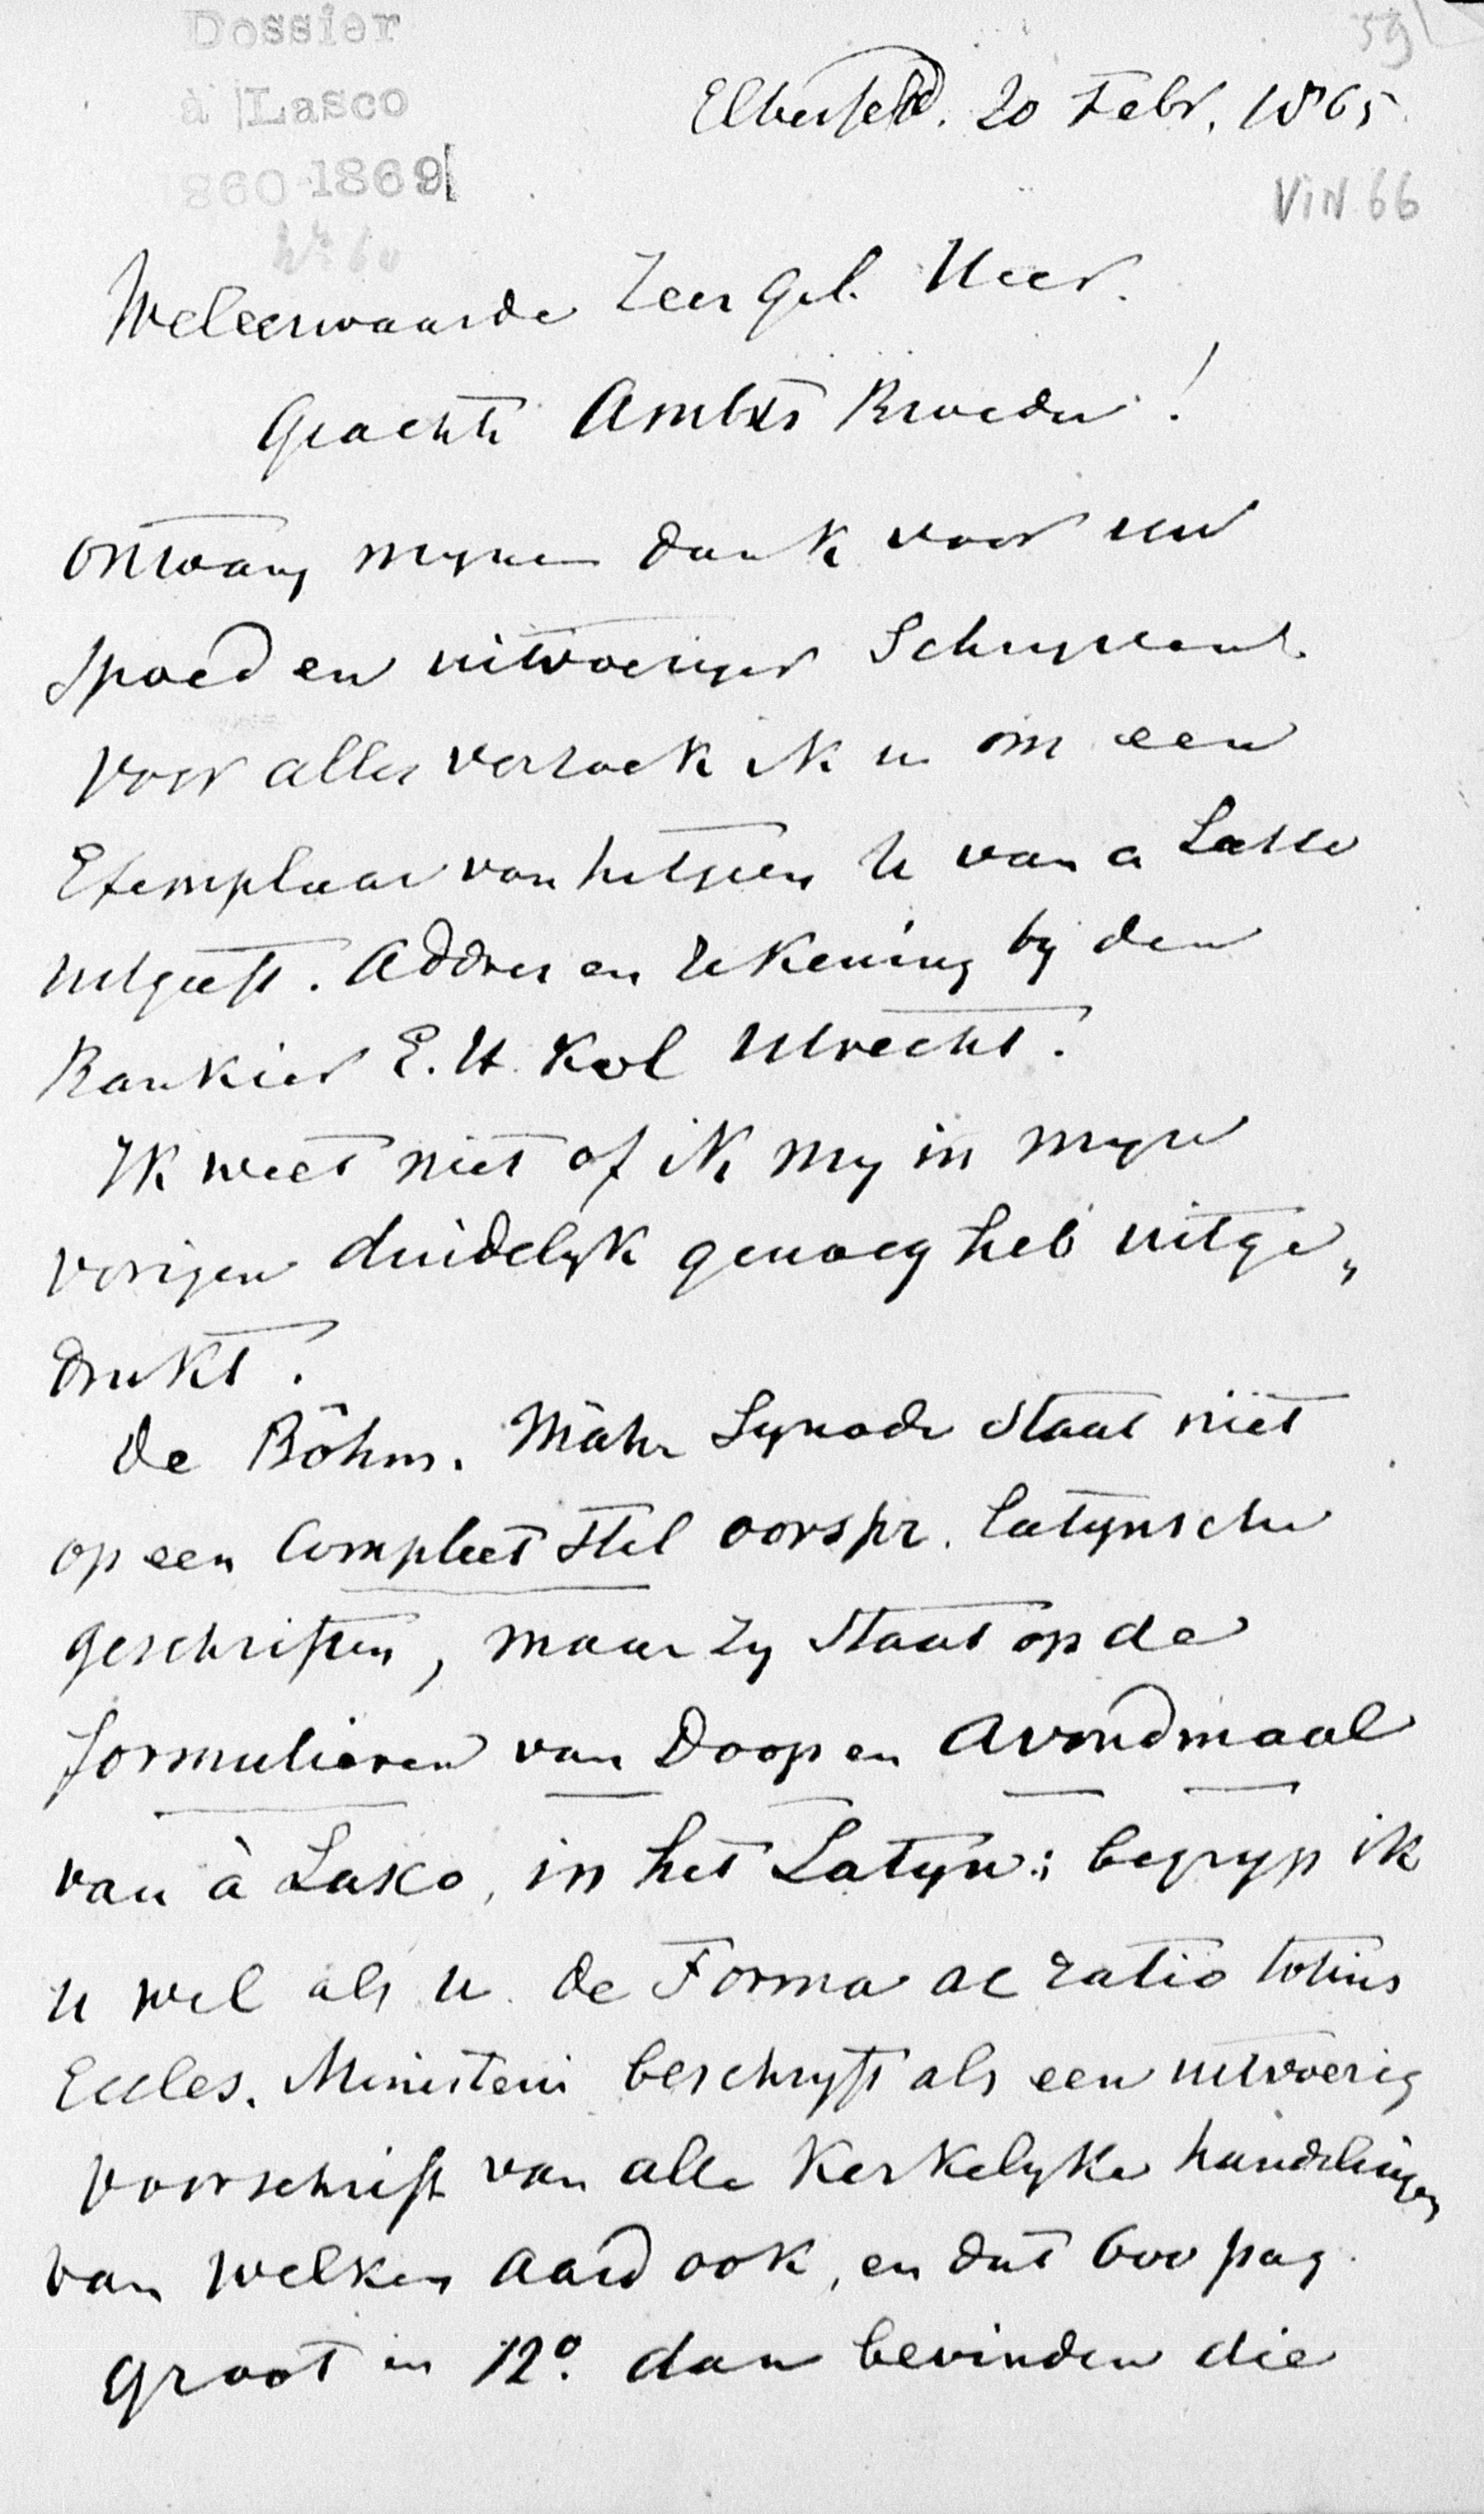 Dossier
à Lasco
860-1869
59
Elberfeld. 20 Febr. 1865.
VIN 66
Weleerwaarde Zeer Gel. Heer.
Geachte Ambts Broeder!
Ontvang mynen dank voor uw
spoed en uitvoeriger Schryven.
Voor alles verzoek ik u om een
Exemplaar van hetgeen U van a Lasco
uitgeeft. Addres en rekening by den
Bankier E. H. Kol Utrecht.
Ik weet niet of ik my in myn
vorigen duidelyk genoeg heb uitge„
drukt.
De Böhm. Mähr Synode staat niet
op een Compleet stel oorspr. latynsche
geschriften, maar zy staat op de
formulieren van Doop en Avondmaal
van à Lasko, in het Latyn; begryp ik
u wel als u de Forma ac ratio totius
Eccles. Ministerii beschryft als een uitvoerig
voorschrift van alle Kerkelyke handelingen
van welken aard ook, en dat 600 pag.
groot in 12º. dan bevinden die